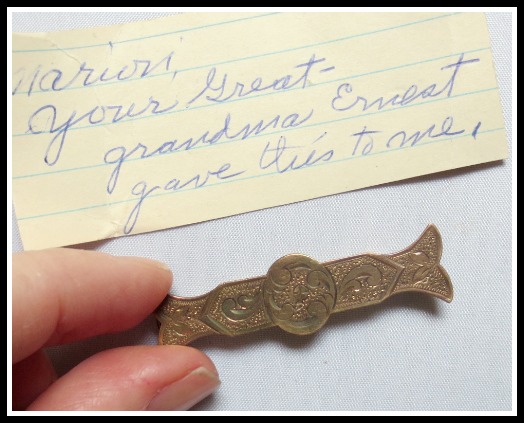 Marion,
Your Great-
grandma Ernest
gave this to me,